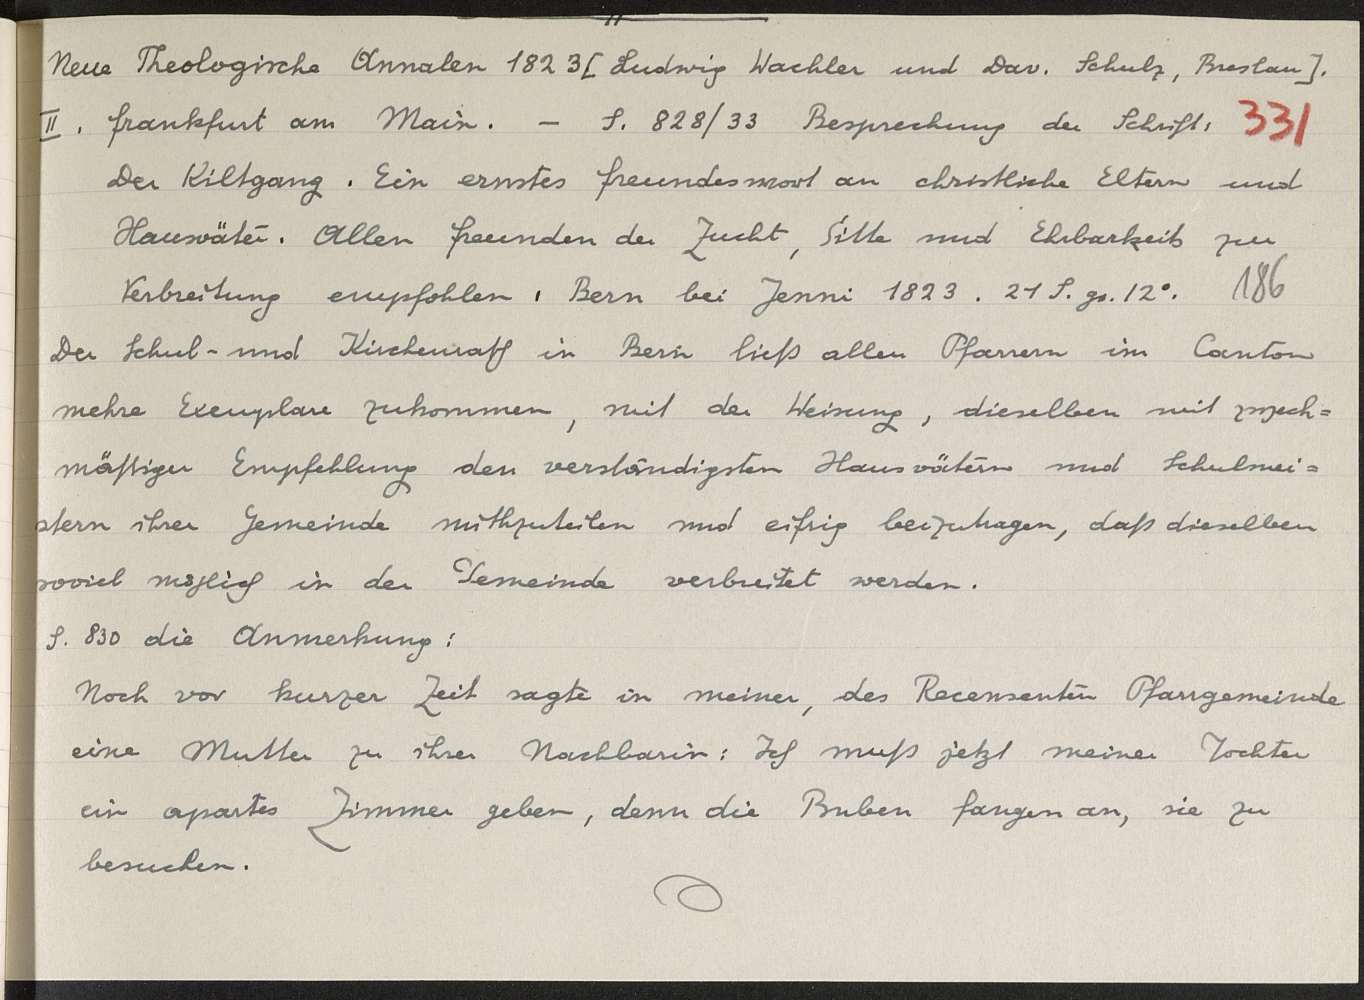 Neue Theologische Annalen 1823 [Ludwig Wachler und Dav. Schulz, Breslau].
II. Frankfurt am Main. — S. 828/33 Besprechung der Schrift: 331
Der Kiltgang. Ein ernstes Freundeswort an christliche Eltern und
Hausväter. Allen Freunden der Zucht, Sitte und Ehrbarkeit zur
Verbreitung empfohlen. Bern bei Jenni 1823. 21 S. gr. 12°. 186
Der Schul- und Kirchenrath in Bern ließ allen Pfarrern im Canton
mehre Exemplare zukommen, mit der Weisung, dieselben mit zweck=
mäßiger Empfehlung den verständigsten Hausvätern und Schulmei=
stern ihrer Gemeinde mitzuteilen und eifrig beizutragen, daß dieselben
soviel möglich in der Gemeinde verbreitet werden.
S. 830 die Anmerkung:
Noch vor kurzer Zeit sagte in meiner, des Recensenten Pfarrgemeinde
eine Mutter zu ihrer Nachbarin: Ich muß jetzt meiner Tochter
ein apartes Zimmer geben, denn die Buben fangen an, sie zu
besuchen.